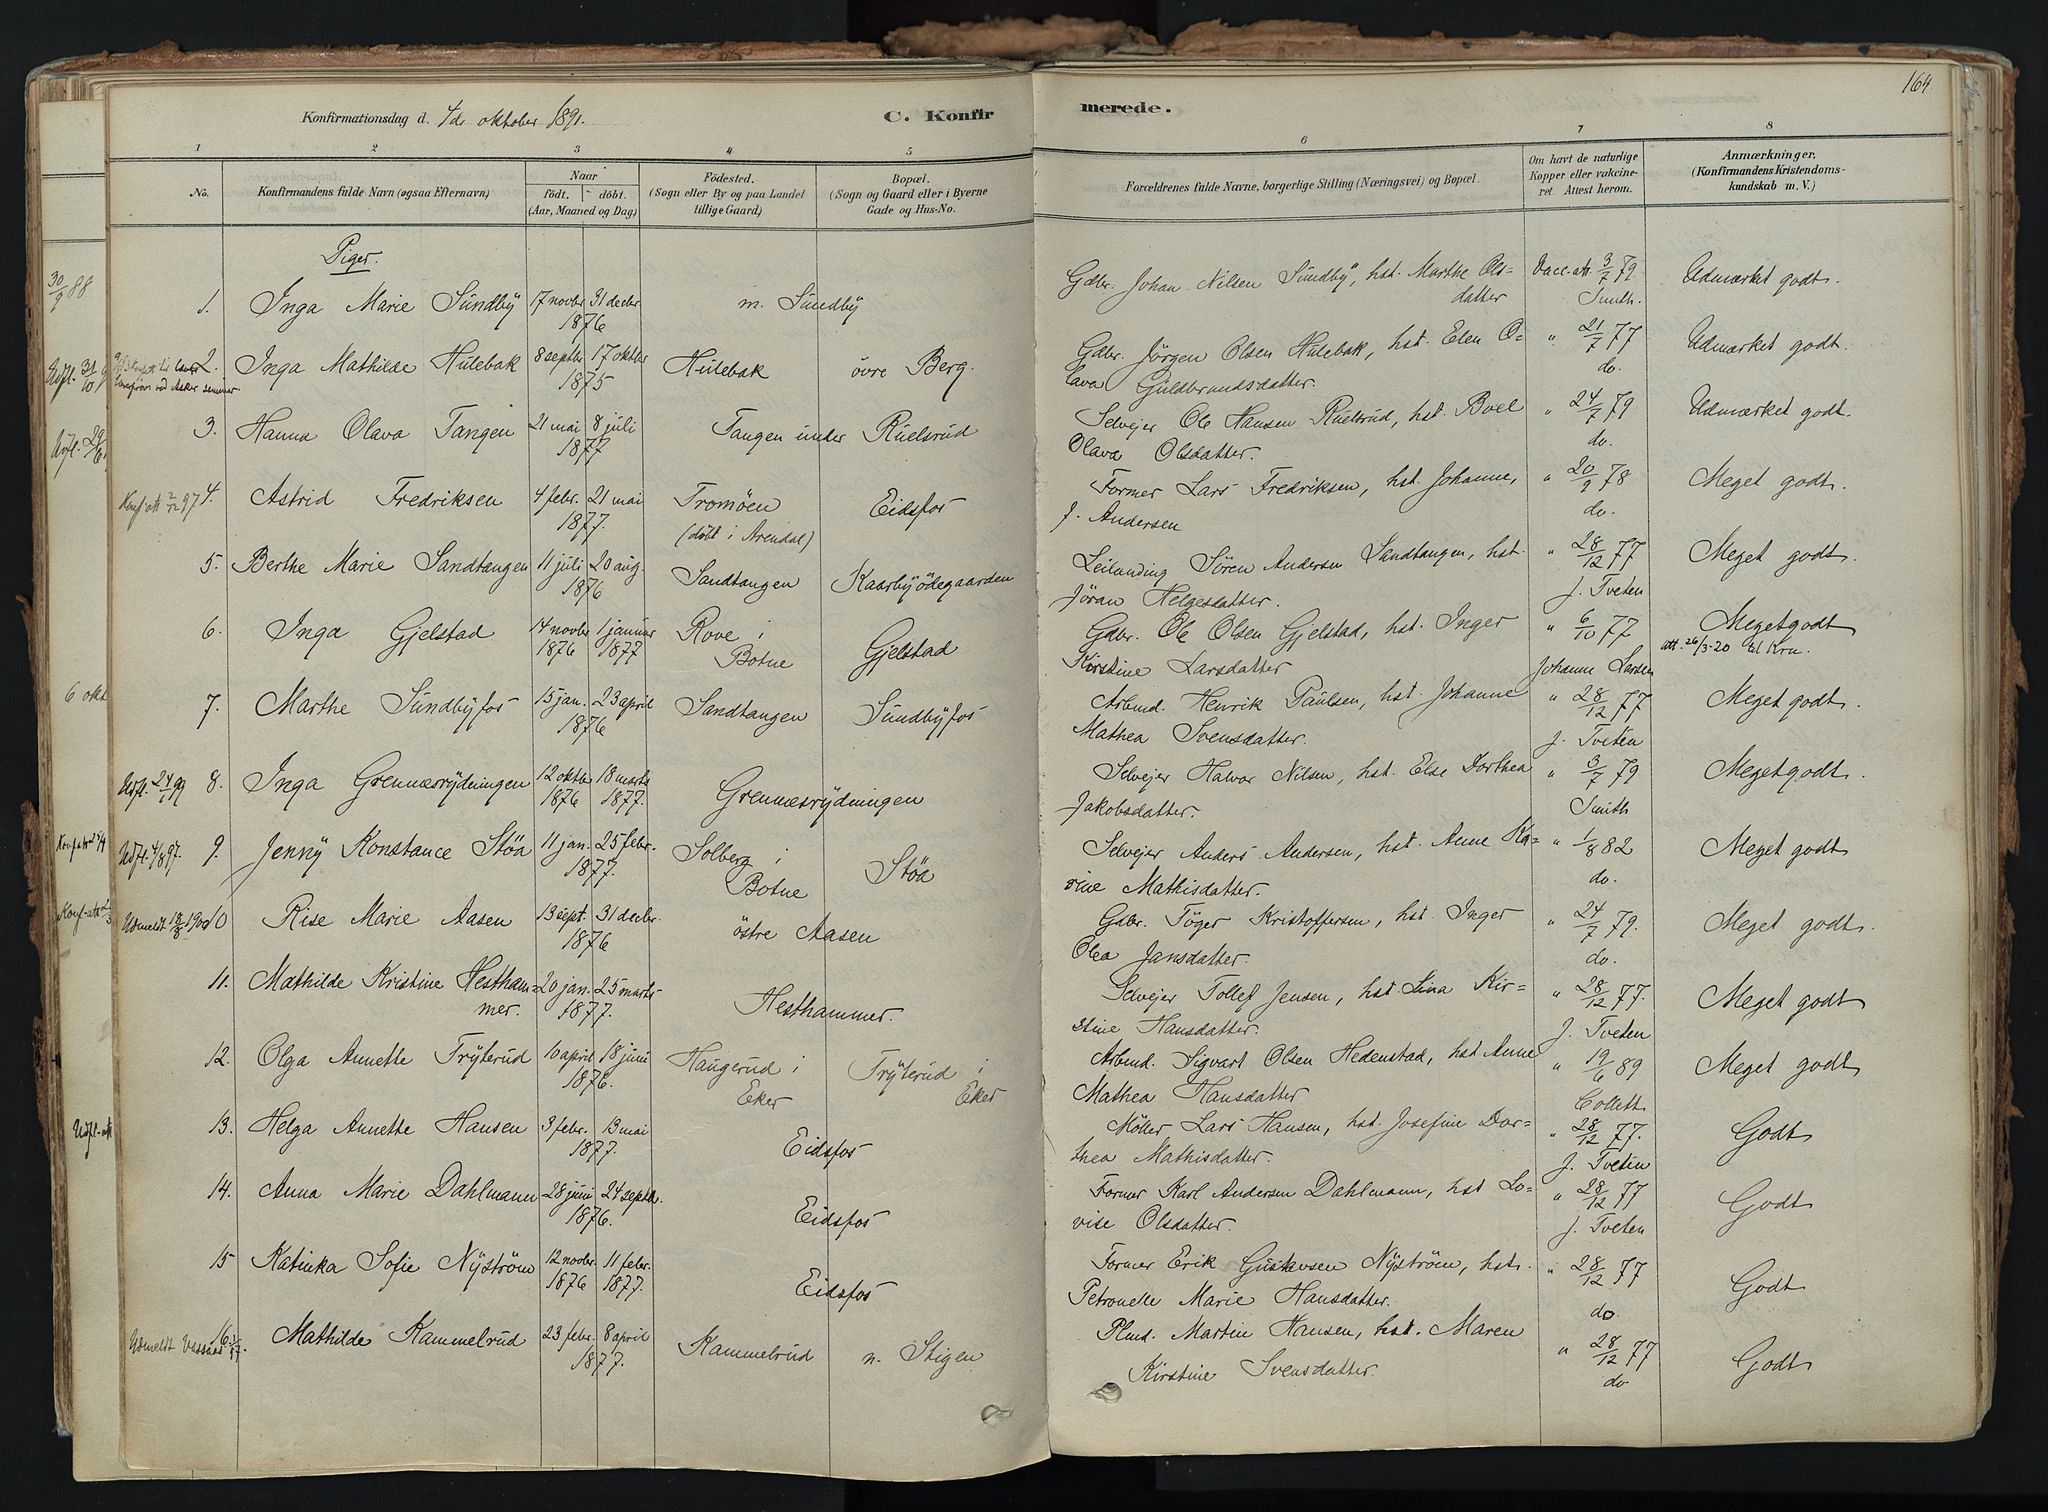 164
Konfirmationsdag d. 4de oktober 1891.
C. Konfirmerede.
1 2 3 4 5 6 7 8
No.
Konfirmandens fulde Navn (ogsaa Efternavn)
Naar født. døbt. (Aar, Maaned og Dag)
Fødested. (Sogn eller By og paa Landet tillige Gaard)
Bopæl. (Sogn og Gaard eller i Byerne Gade og Hus-No.
Forældrenes fulde Navne, borgerlige Stilling (Næringsvei) og Bopæl.
Om havt de naturlige Kopper eller vakcineret. Attest herom.
Anmærkninger. (Konfirmandens Kristendomskundskab m. V.)
Piger.
30/9 88
1. Inga Marie Sundby 17 novbr 31 decbr 1876 m. Sundby Gdbr. Johan Nilsen Sundby, hst. Marthe Olsdatter Vacc.att. 3/7 79. Smith. Udmærket godt.
Udfl. 31/10
2. Inga Mathilde Hulebak 8 septbr 17 oktbr 1875 Hulebak øvre Berg. Gdbr. Jørgen Olsen Hulebak, hst. Elen Olava Guldbrandsdatter. " 21/7 77 do. Udmærket godt.
ved Asker seminar
3. Hanna Olava Tangen 21 mai 8 juli 1877 Tangen under Ruelsrud Selvejer Ole Hansen Ruelsrud, hst. Boel Olava Olsdatter. " 24/7 79 do. Udmærket godt.
Konf-att 2/12 97
4. Astrid Fredriksen 4 febr. 21 mai 1877. Tromøen (døbt i Arendal) Eidsfos Former Lars Fredriksen, hst. Johanne, J. Andersen " 20/9 78 do. Meget godt.
5. Berthe Marie Sandtangen 11 juli 20 aug. 1876 Sandtangen Kaarbyødegaarden Leilænding Søren Andersen Sandtangen, hst. Jøran Helgesdatter. " 28/12 77 J. Tveten Meget godt.
6. Inga Gjelstad 14 novbr 1876 1 januar 1877 Rove i Botne Gjelstad Gdbr. Ole Olsen Gjelstad, hst. Inger Kirstine Larsdatter " 6/10 77 Johanne Larsen Meget godt att. 26/3-20 til Krn.
6 okt
7. Marthe Sundbyfos 15 jan. 23 april 1876 Sandtangen Sundbyfos Arbmd. Henrik Paulsen, hst. Johanne Mathea Svensdatter. " 28/12 77 J. Tveten Meget godt.
Udfl. 24/1 99
8. Inga Grennesrydningen 12 oktbr 1876 18 marts 1877. Grennesrydningen Selvejer Halvor Nilsen, hst. Else Dorthea Jakobsdatter. " 3/7 79 Smith Meget godt.
Udfl. 4/8 97.
9. Jenny Konstance Støa 11 jan. 25 febr. 1877. Solberg i Botne Støa Selvejer Anders Andersen, hst. Anne Karine Mathisdatter. " 1/8 82 do. Meget godt
Udmeldt 18/8 1900
10 Rise Marie Aasen 13 sept. 31 decbr. 1876 østre Aasen Gdbr. Tøger Kristoffersen, hst. Inger Olea Jansdatter. " 24/7 79. do. Meget godt.
11. Mathilde Kristine Hesthammer. 20 jan. 25 marts 1877. Hesthammer. Selvejer Tollef Jensen, hst. Lina Kirstine Hansdatter. " 28/12 77. J. Tveten Meget godt
12. Olga Annette Tryterud 10 april 18 juni 1876. Haugerud i Eker Tryterud i Eker Arbmd. Sigvart Olsen Hedenstad, hst Anne Mathea Hansdatter " 19/6 89 Collett Meget godt
Udfl.-att
13. Helga Annette Hansen 3 febr. 13 mai 1877. Eidsfos Møller Lars Hansen, hst. Josefine Dorthea Mathisdatter. " 28/12 77. J. Tveten Godt
14. Anna Marie Dahlmann 28 juni 24 septbr. 1876. Eidsfos Former Karl Andersen Dahlmann, hst Lovise Olsdatter. " 28/12 77 J. Tveten Godt
15 Katinka Sofie Nyström 12 novbr. 1876 11 febr. 1877. Eidsfos Former Erik Gustavsen Nyström, hst. Petronelle Marie Hansdatter. " 28/12 77 do Godt
Udmeldt
16. Mathilde Kammelrud 23 febr. 8 april 1877. Kammelrud n. Stigen Plmd. Martin Hansen, hst. Maren Kirstine Svensdatter. " 28/12 77 do Godt